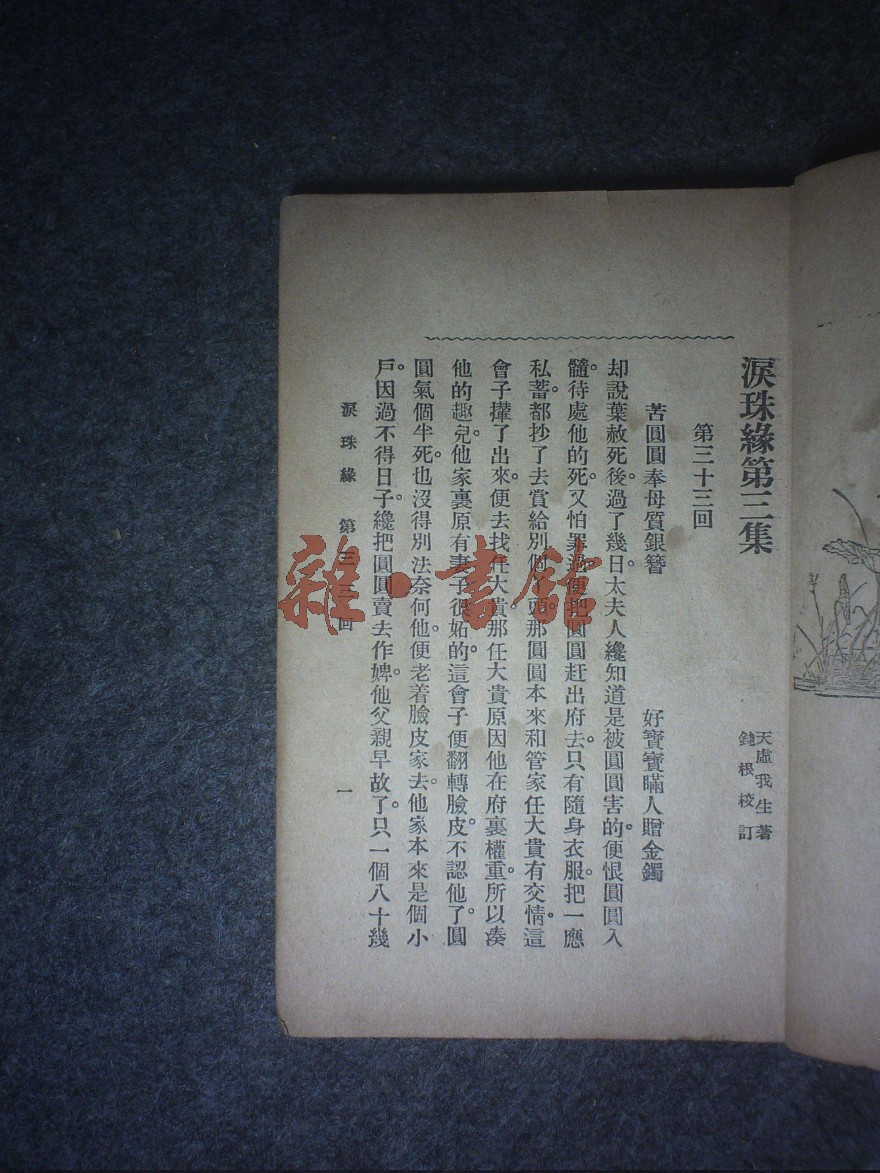 淚珠緣第三集
天虛我生著
鈍根校訂
第三十三回
苦圓圓奉母質銀簪　好寶寶瞞人贈金鐲
却說葉赦死後。過了幾日。太夫人纔知道是被圓圓害的。便恨圓圓入
髓。待處他的死。又怕罪過。便把圓圓赶出府去。只有隨身衣服。把一應
私蓄。都抄了去。賞給別個丫頭。那圓圓本來和管家任大貴有交情。這
會子攆了出來。便去找任大貴。那任大貴原因他在府裏權重。所以湊
他的趣兒。他家裏原有妻子很妬的。這會子便翻轉臉皮。不認他了。圓
圓氣個半死。也沒得別法奈何他。便老着臉皮家去。他家本來是個小
戶。因過不得日子。纔把圓圓賣去作婢。他父親早故了。只一個八十幾
淚珠緣　第三三回　一
雜·書館